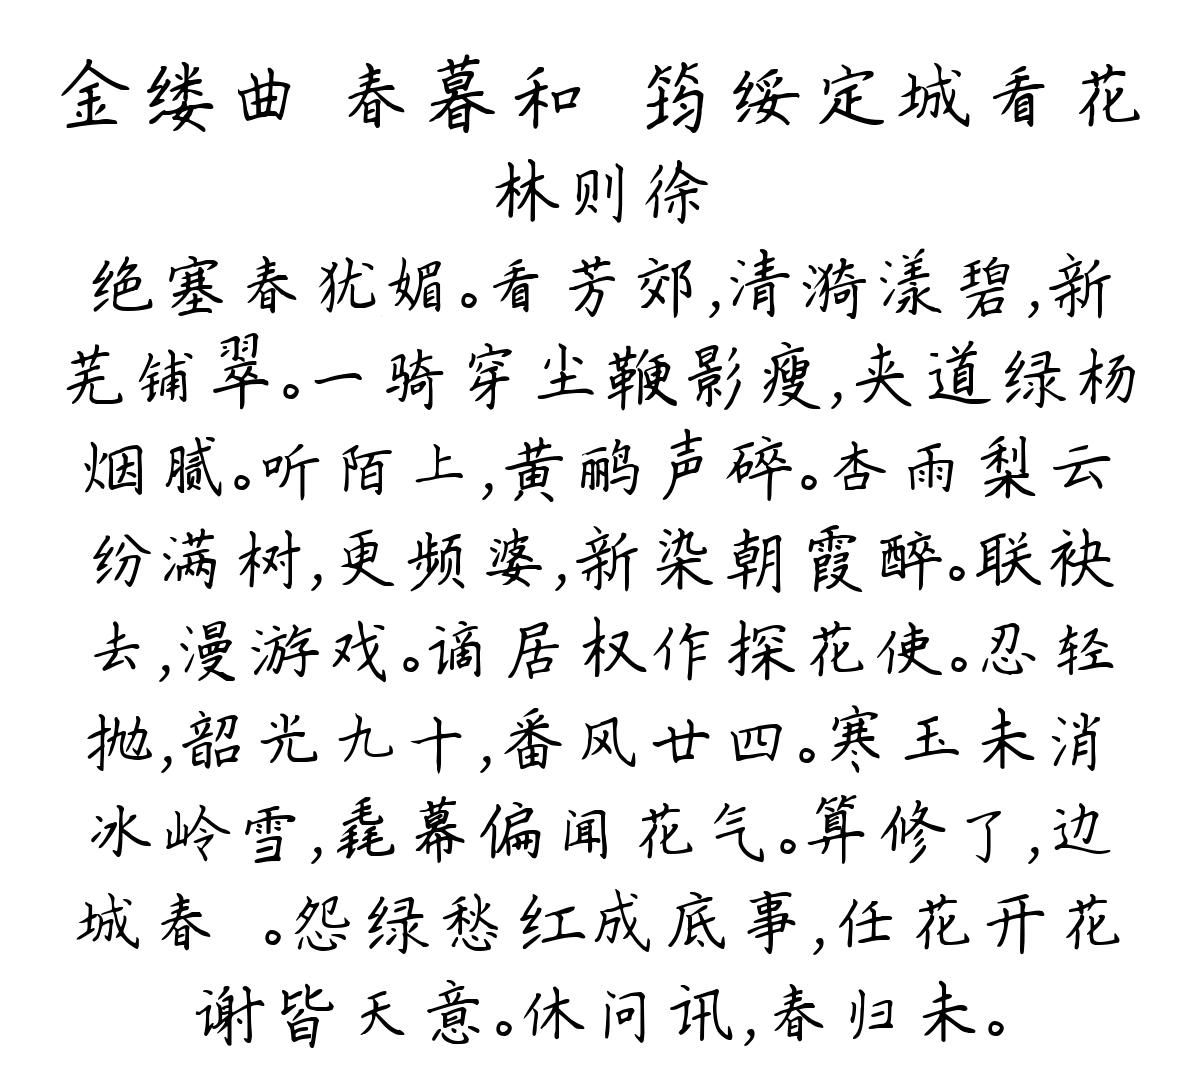 金缕曲 春暮和 筠绥定城看花
林则徐
绝塞春犹媚。看芳郊,清漪漾碧,新
芜铺翠。一骑穿尘鞭影瘦,夹道绿杨
烟腻。听陌上,黄鹂声碎。杏雨梨云
纷满树,更频婆,新染朝霞醉。联袂
去,漫游戏。谪居权作探花使。忍轻
抛,韶光九十,番风廿四。寒玉未消
冰岭雪,毳幕偏闻花气。算修了,边
城春 。怨绿愁红成底事,任花开花
谢皆天意。休问讯,春归未。